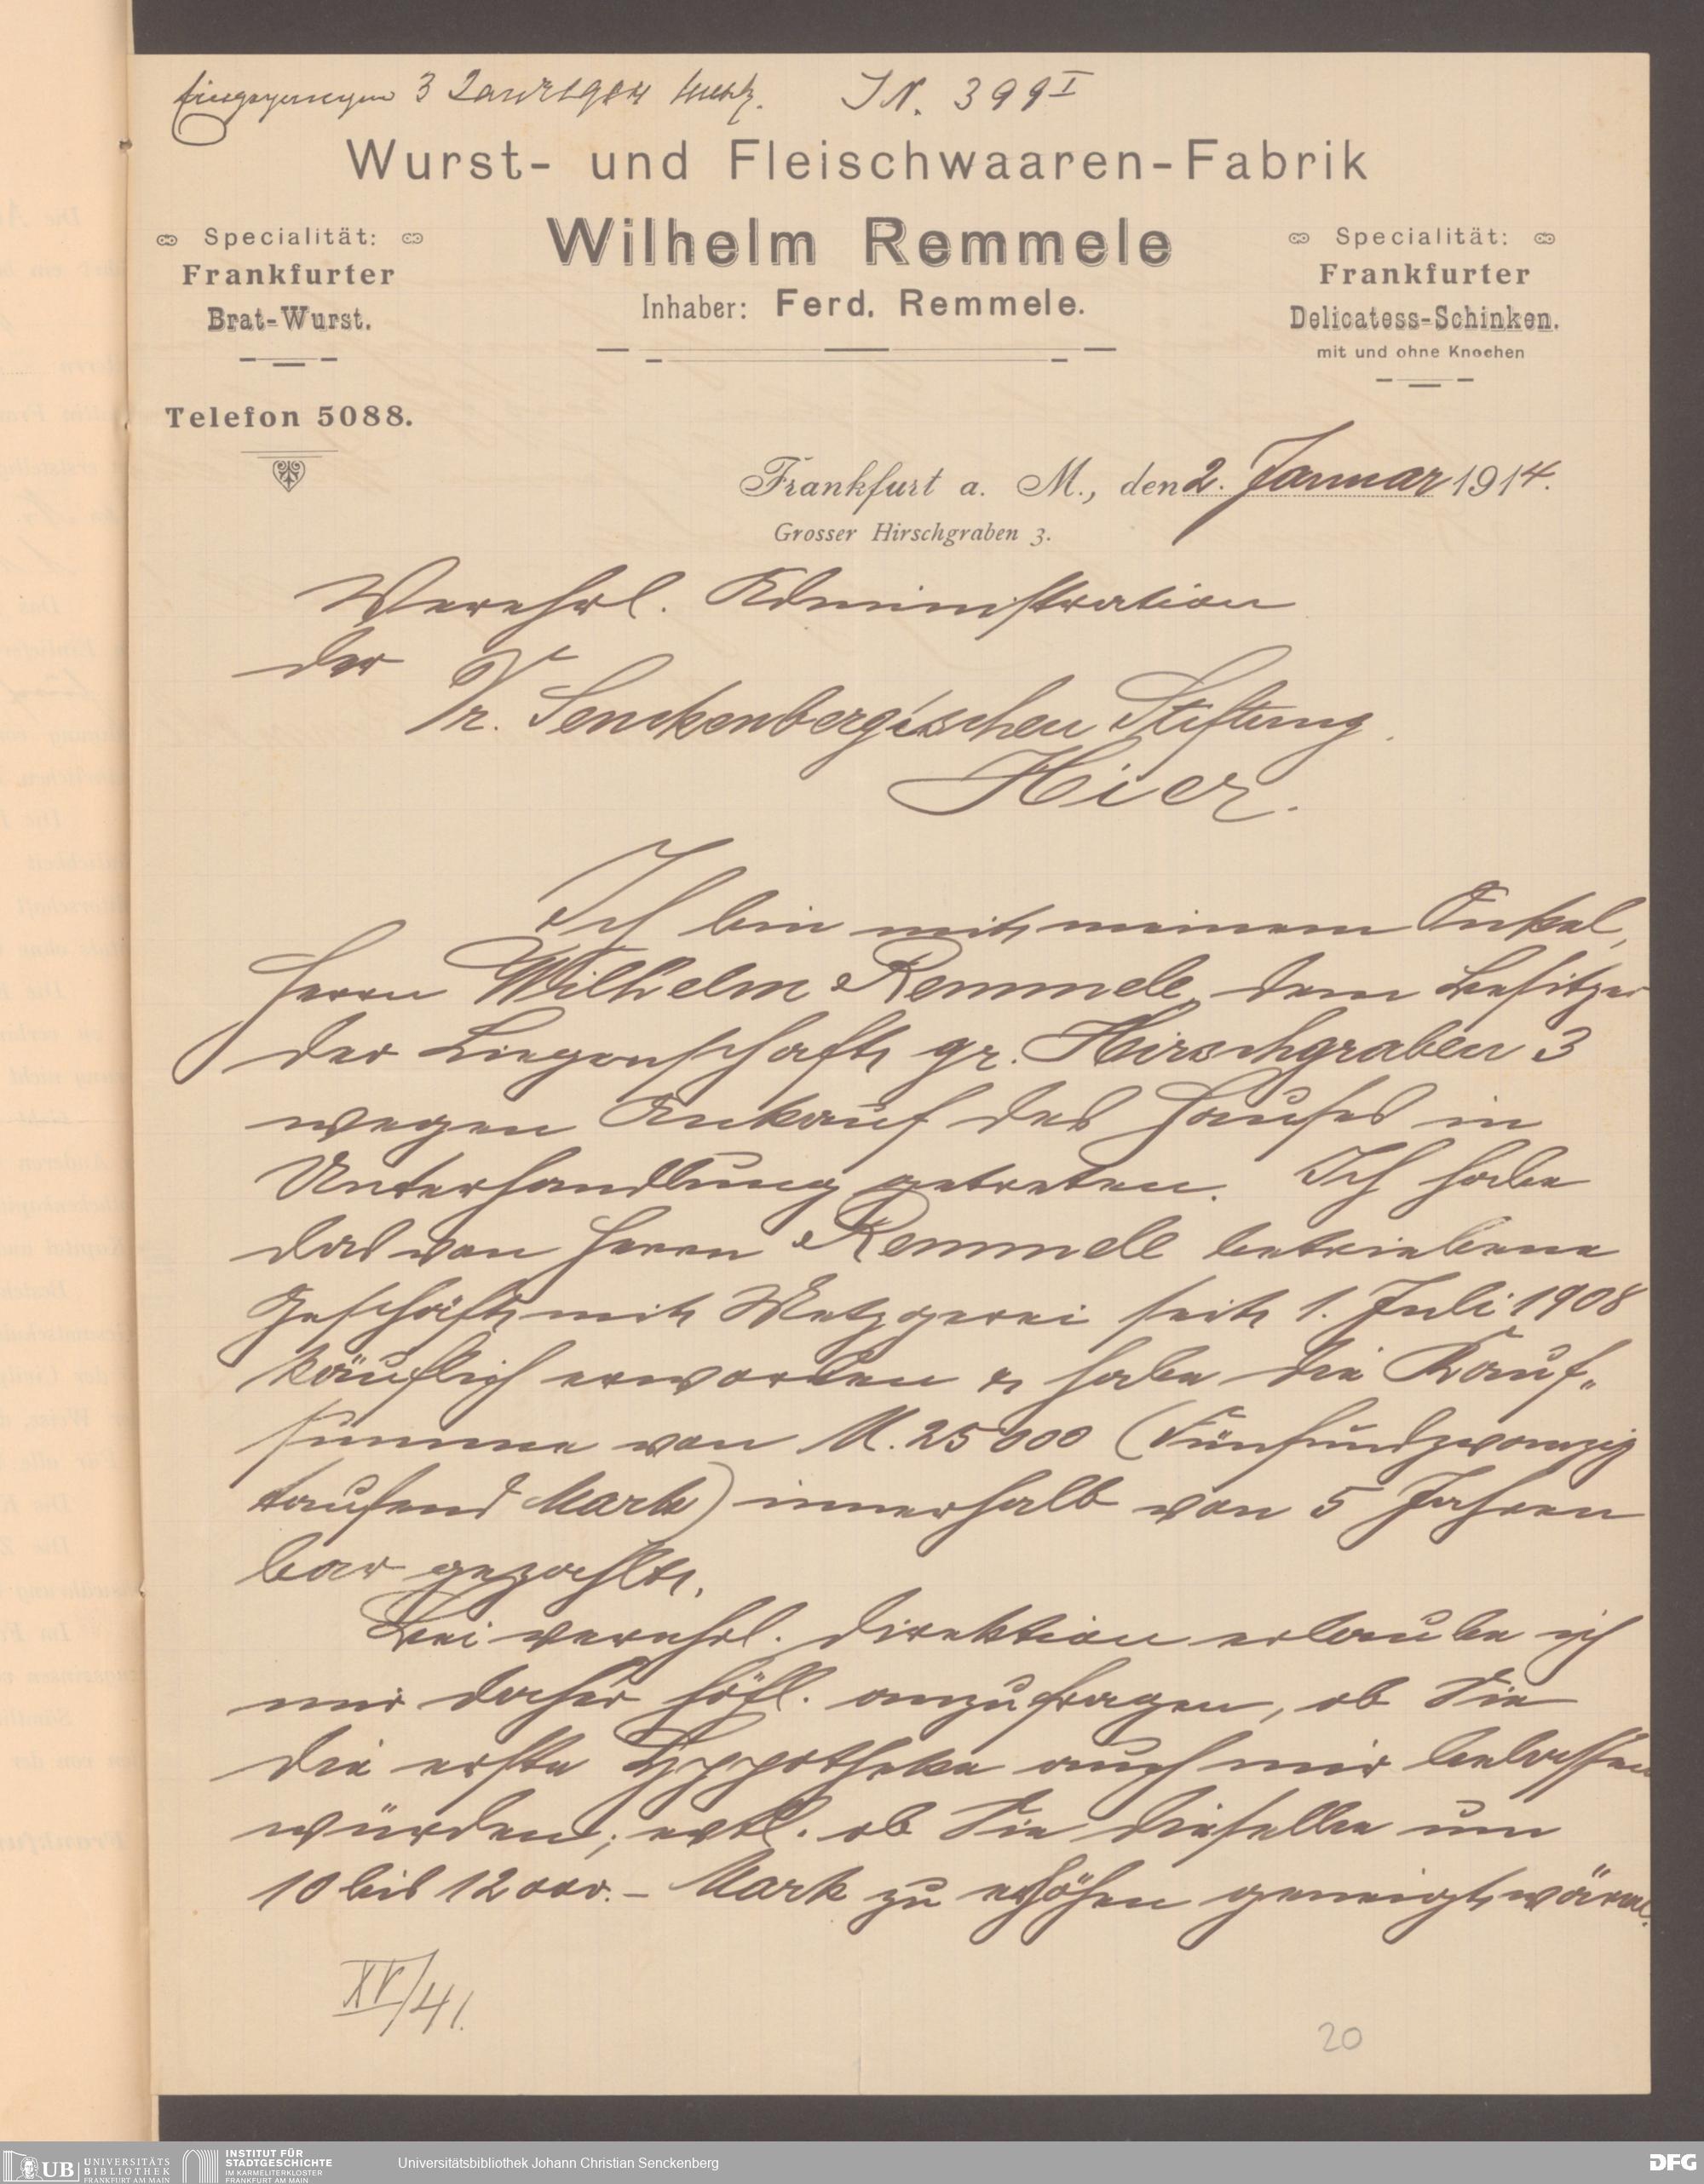 Eingegangen 3 Januar 1914 J N. 399 I
Wurst- und Fleischwaaren-Fabrik
Wilhelm Remmele
Inhaber: Ferd. Remmele.
Specialität:
Frankfurter
Brat-Wurst.
Telefon 5088.
Specialität:
Frankfurter
Delicatess-Schinken.
mit und ohne Knochen
Frankfurt a. M., den 2. Januar 1914.
Grosser Hirschgraben 3.
Verehrl. Administration
der
Dr. Senckenbergischen Stiftung.
Hier.
Ich bin mit meinem Onkel,
Herrn Wilhelm Remmele, dem Besitzer
der Liegenschaft gr. Hirschgraben 3
wegen Ankauf des Hauses in
Unterhandlung getreten. Ich habe
das von Herrn Remmele betriebene
Geschäft mit Metzgerei seit 1. Juli 1908
käuflich erworben & habe die Kauf-
summe von M. 25000 (Fünfundzwanzig
tausend Mark) innerhalb von 5 Jahren
bar gezahlt.
Bei verehrl. Direktion erlaube ich
mir daher höfl. anzufragen, ob Sie
die erste Hypotheke auch mir belassen
würden; evtl. ob Sie dieselbe um
10 bis 12000.- Mark zu erhöhen geneigt wären.
XV/41.
20
UB UNIVERSITÄTS
BIBLIOTHEK
FRANKFURT AM MAIN
INSTITUT FÜR
STADTGESCHICHTE
IM KARMELITERKLOSTER
FRANKFURT AM MAIN
Universitätsbibliothek Johann Christian Senckenberg
DFG